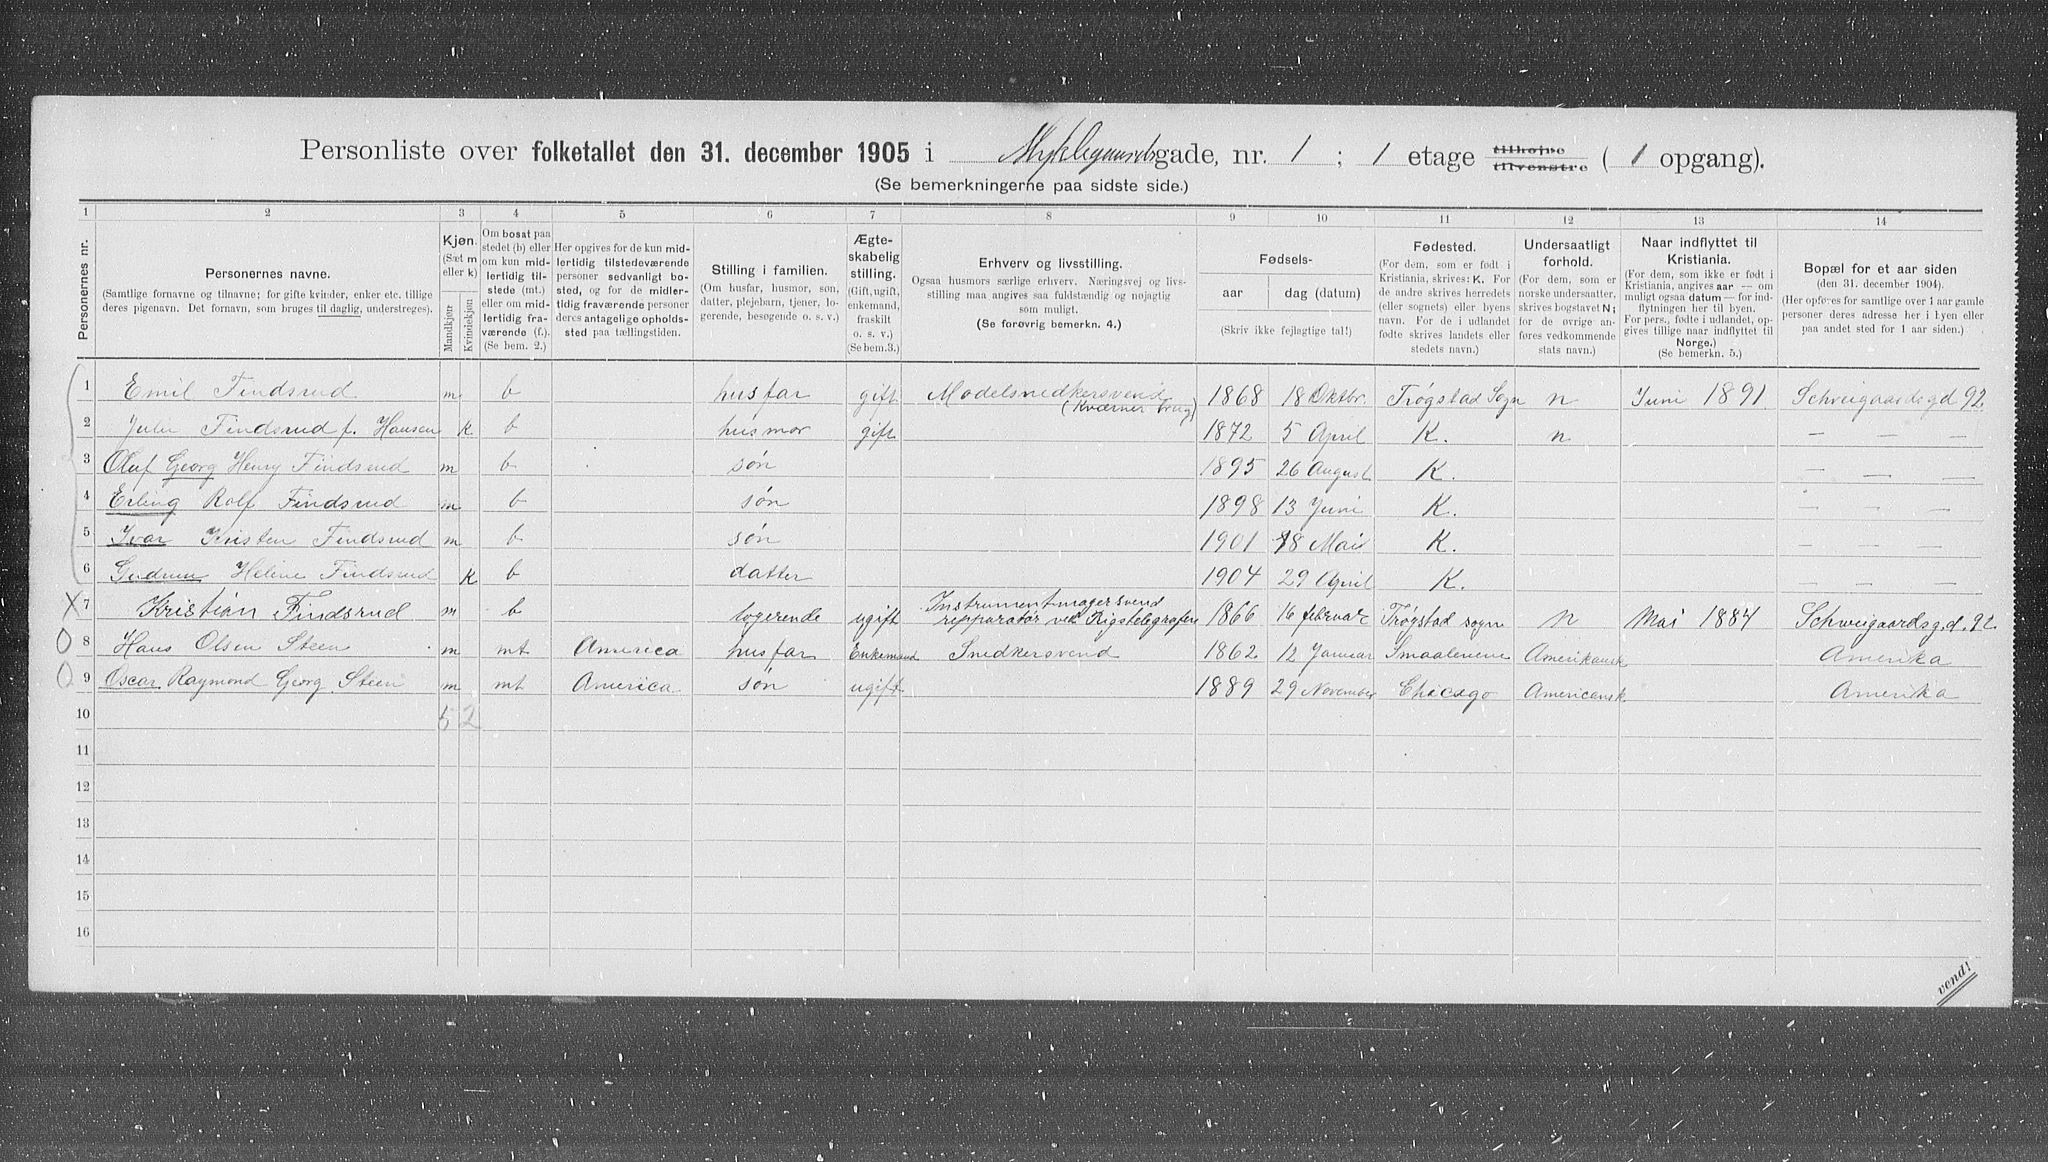 Personliste over folketallet den 31. december 1905 i Myklegaardsgade, nr. 1 ; 1 etage tilhøjre tilvenstre ( 1 opgang).
(Se bemerkningerne paa sidste side.)
1 2 3 4 5 6 7 8 9 10 11 12 13 14
Personernes nr.
Personernes navne.
(Samtlige fornavne og tilnavne; for gifte kvinder, enker etc. tillige
deres pigenavn. Det fornavn, som bruges til daglig, understreges).
Kjøn.
(Sæt m
eller k)
Mandkjøn
Kvindekjøn
Om bosat paa
stedet (b) eller
om kun mid-
lertidig til-
stede (mt.)
eller om mid-
lertidig fra-
værende (f.).
(Se bem. 2.)
Her opgives for de kun mid-
lertidig tilstedeværende
personer sedvanlig bo-
sted, og for de midler-
tidig fraværende personer
deres antagelige opholds-
sted paa tællingstiden.
Stilling i familien.
(Om husfar, husmor, søn,
datter, plejebarn, tjener, lo-
gerende, besøgende o. s. v.)
Ægte-
skabelig
stilling.
(Gift, ugift,
enkemand,
fraskilt
o. s. v.)
(Se bem.3.)
Erhverv og livsstilling.
Ogsaa husmors særlige erhverv. Næringsvej og livs-
stilling maa angives saa fuldstændig og nøjagtig
som muligt.
(Se forøvrig bemerkn. 4.)
Fødsels-
aar
dag (datum)
(Skriv ikke fejlagtige tal!)
Fødested.
(For dem, som er født i
Kristiania, skrives: K. For
de andre skrives herredets
(eller sognets) eller byens
navn. For de i udlandet
fødte skrives landets eller
stedets navn.)
Undersaatligt
forhold.
(For dem, som er
norske undersaatter,
skrives bogstavet N;
for de øvrige an-
føres vedkommende
stats navn.)
Naar indflyttet til
Kristiania.
(For dem, som ikke er født i
Kristiania, angives aar — om
muligt ogsaa datum — for ind-
flytningen her til byen.
For pers., fødte i udlandet, op-
gives tillige naar indflyttet til
Norge.)
(Se bemerkn. 5.)
Bopæl for et aar siden
(den 31. december 1904).
(Her opføres for samtlige over 1 aar gamle
personer deres adresse her i byen eller
paa andet sted for 1 aar siden.)
1 Emil Findsrud m b husfar gift Modelsnedkersvend (Kværner brug) 1868 18 Oktbr. Trøgstad Sogn n Juni 1891 Schweigaardsgd 92.
2 Julie Findsrud f. Hansen k b husmor gift 1872 5 April K. n — — —
3 Oluf Georg Henry Findsrud m b søn 1895 26 August K. — — —
4 Erling Rolf Findsrud m b søn 1898 13 Juni K. — — —
5 Ivar Kristen Findsrud m b søn 1901 18 Mai K. — — —
6 Gudrun Helene Findsrud k b datter 1904 29 April K. — — —
X 7 Kristian Findsrud m b logerende ugift Instrumentmagersvend repparatør ved Rigstelegrafen 1866 16 februar Trøgstad sogn n Mai 1884 Schweigaardsgd. 92
0 8 Hans Olsen Steen m mt America husfar Enkemand Snedkersvend 1862 12 Januar Smaalenene Amerikansk Amerika
0 9 Oscar Raymond Georg Steen m mt America søn ugift 1889 29 November Chicago Americansk Amerika
10 5 2
11
12
13
14
15
16
vend!